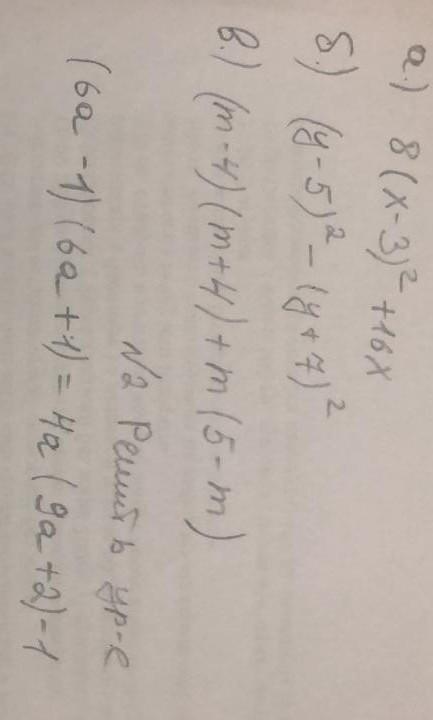 а.) 8(x-3)² +16x
б.) (y-5)² - (y+7)²
в.) (m-4)(m+4)+m(5-m)
N2 Решить ур-е
(6a-1)(6a+1)=4a(9a+2)-1